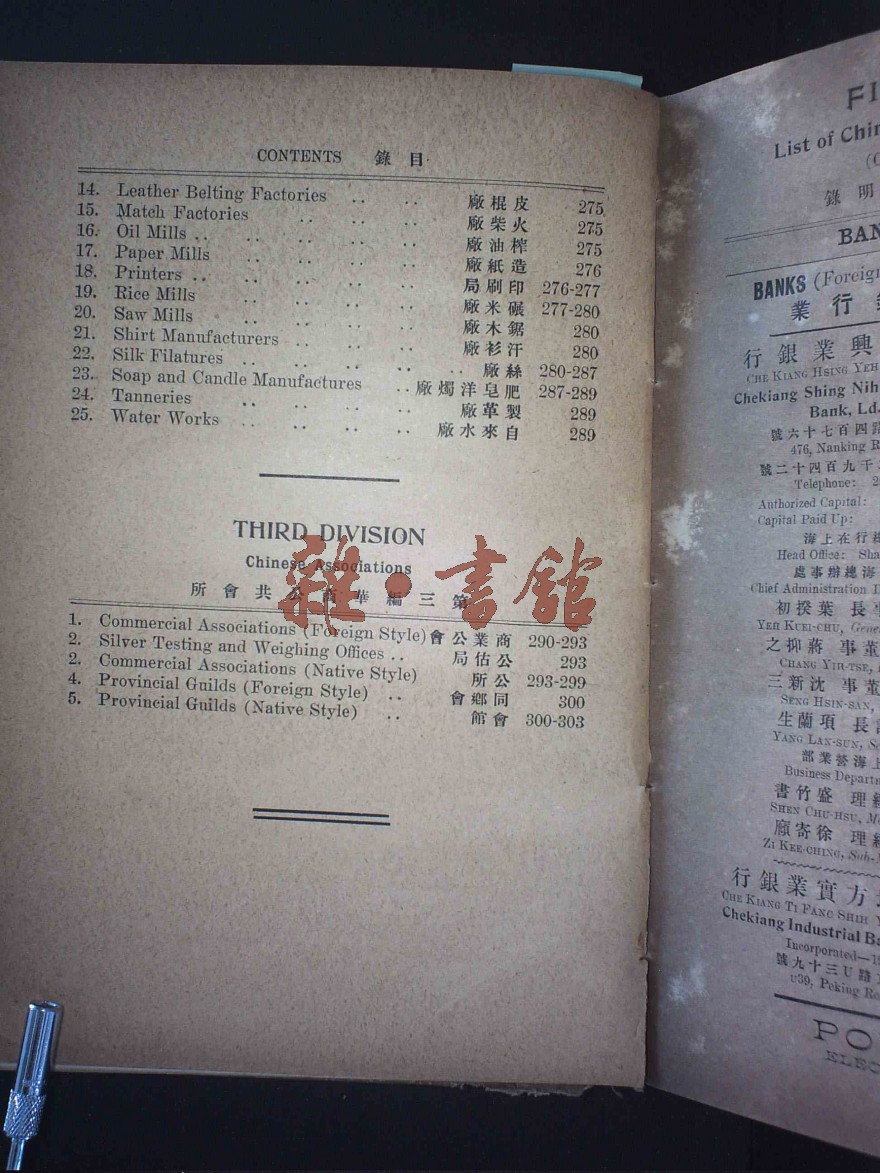 CONTENTS 錄目
14. Leather Belting Factories .. .. 廠棍皮 275
15. Match Factories .. .. .. 廠柴火 275
16. Oil Mills .. .. .. .. 廠油榨 275
17. Paper Mills .. .. .. 廠紙造 276
18. Printers .. .. .. .. 局刷印 276-277
19. Rice Mills .. .. .. 廠米碾 277-280
20. Saw Mills .. .. .. 廠木鋸 280
21. Shirt Manufacturers .. .. .. 廠衫汗 280
22. Silk Filatures .. .. .. .. 廠絲 280-287
23. Soap and Candle Manufactures .. 廠燭洋皂肥 287-289
24. Tanneries .. .. .. .. 廠革製 289
25. Water Works .. .. .. .. 廠水來自 289
THIRD DIVISION
Chinese Associations
所會共公商華編三第
1. Commercial Associations (Foreign Style) 會公業商 290-293
2. Silver Testing and Weighing Offices .. 局估公 293
2. Commercial Associations (Native Style) 所公 293-299
4. Provincial Guilds (Foreign Style) .. 會鄉同 300
5. Provincial Guilds (Native Style) .. 館會 300-303
雜·書舘
FI
List of Chin
錄明
BAN
BANKS (Foreign
業行
行銀業興
CHE KIANG HSING YEH
Chekiang Shing Nih
Bank, Ld.
號六十七百四路
476, Nanking R
號二十四百九千
Telephone: 2
Authorized Capital:
Capital Paid Up:
海上在行
Head Office: Sha
處事辦總海
Chief Administration D
初揆葉長
YEH KUEI-CHU, Gene
之抑蔣事董
CHANG YIH-TSE,
三新沈事董
SENG HSIN-SAN,
生蘭項長
YANG LAN-SUN, S
部業營海上
Business Departm
書竹盛理
SHEN CHU-HSU, M
廎寄徐理
ZI KEE-CHING, Sub-
行銀業實方
CHE KIANG TI FANG SHIH Y
Chekiang Industrial Ba
Incorporated—19
號九十三U路
U39, Peking Ro
PO
ELEC